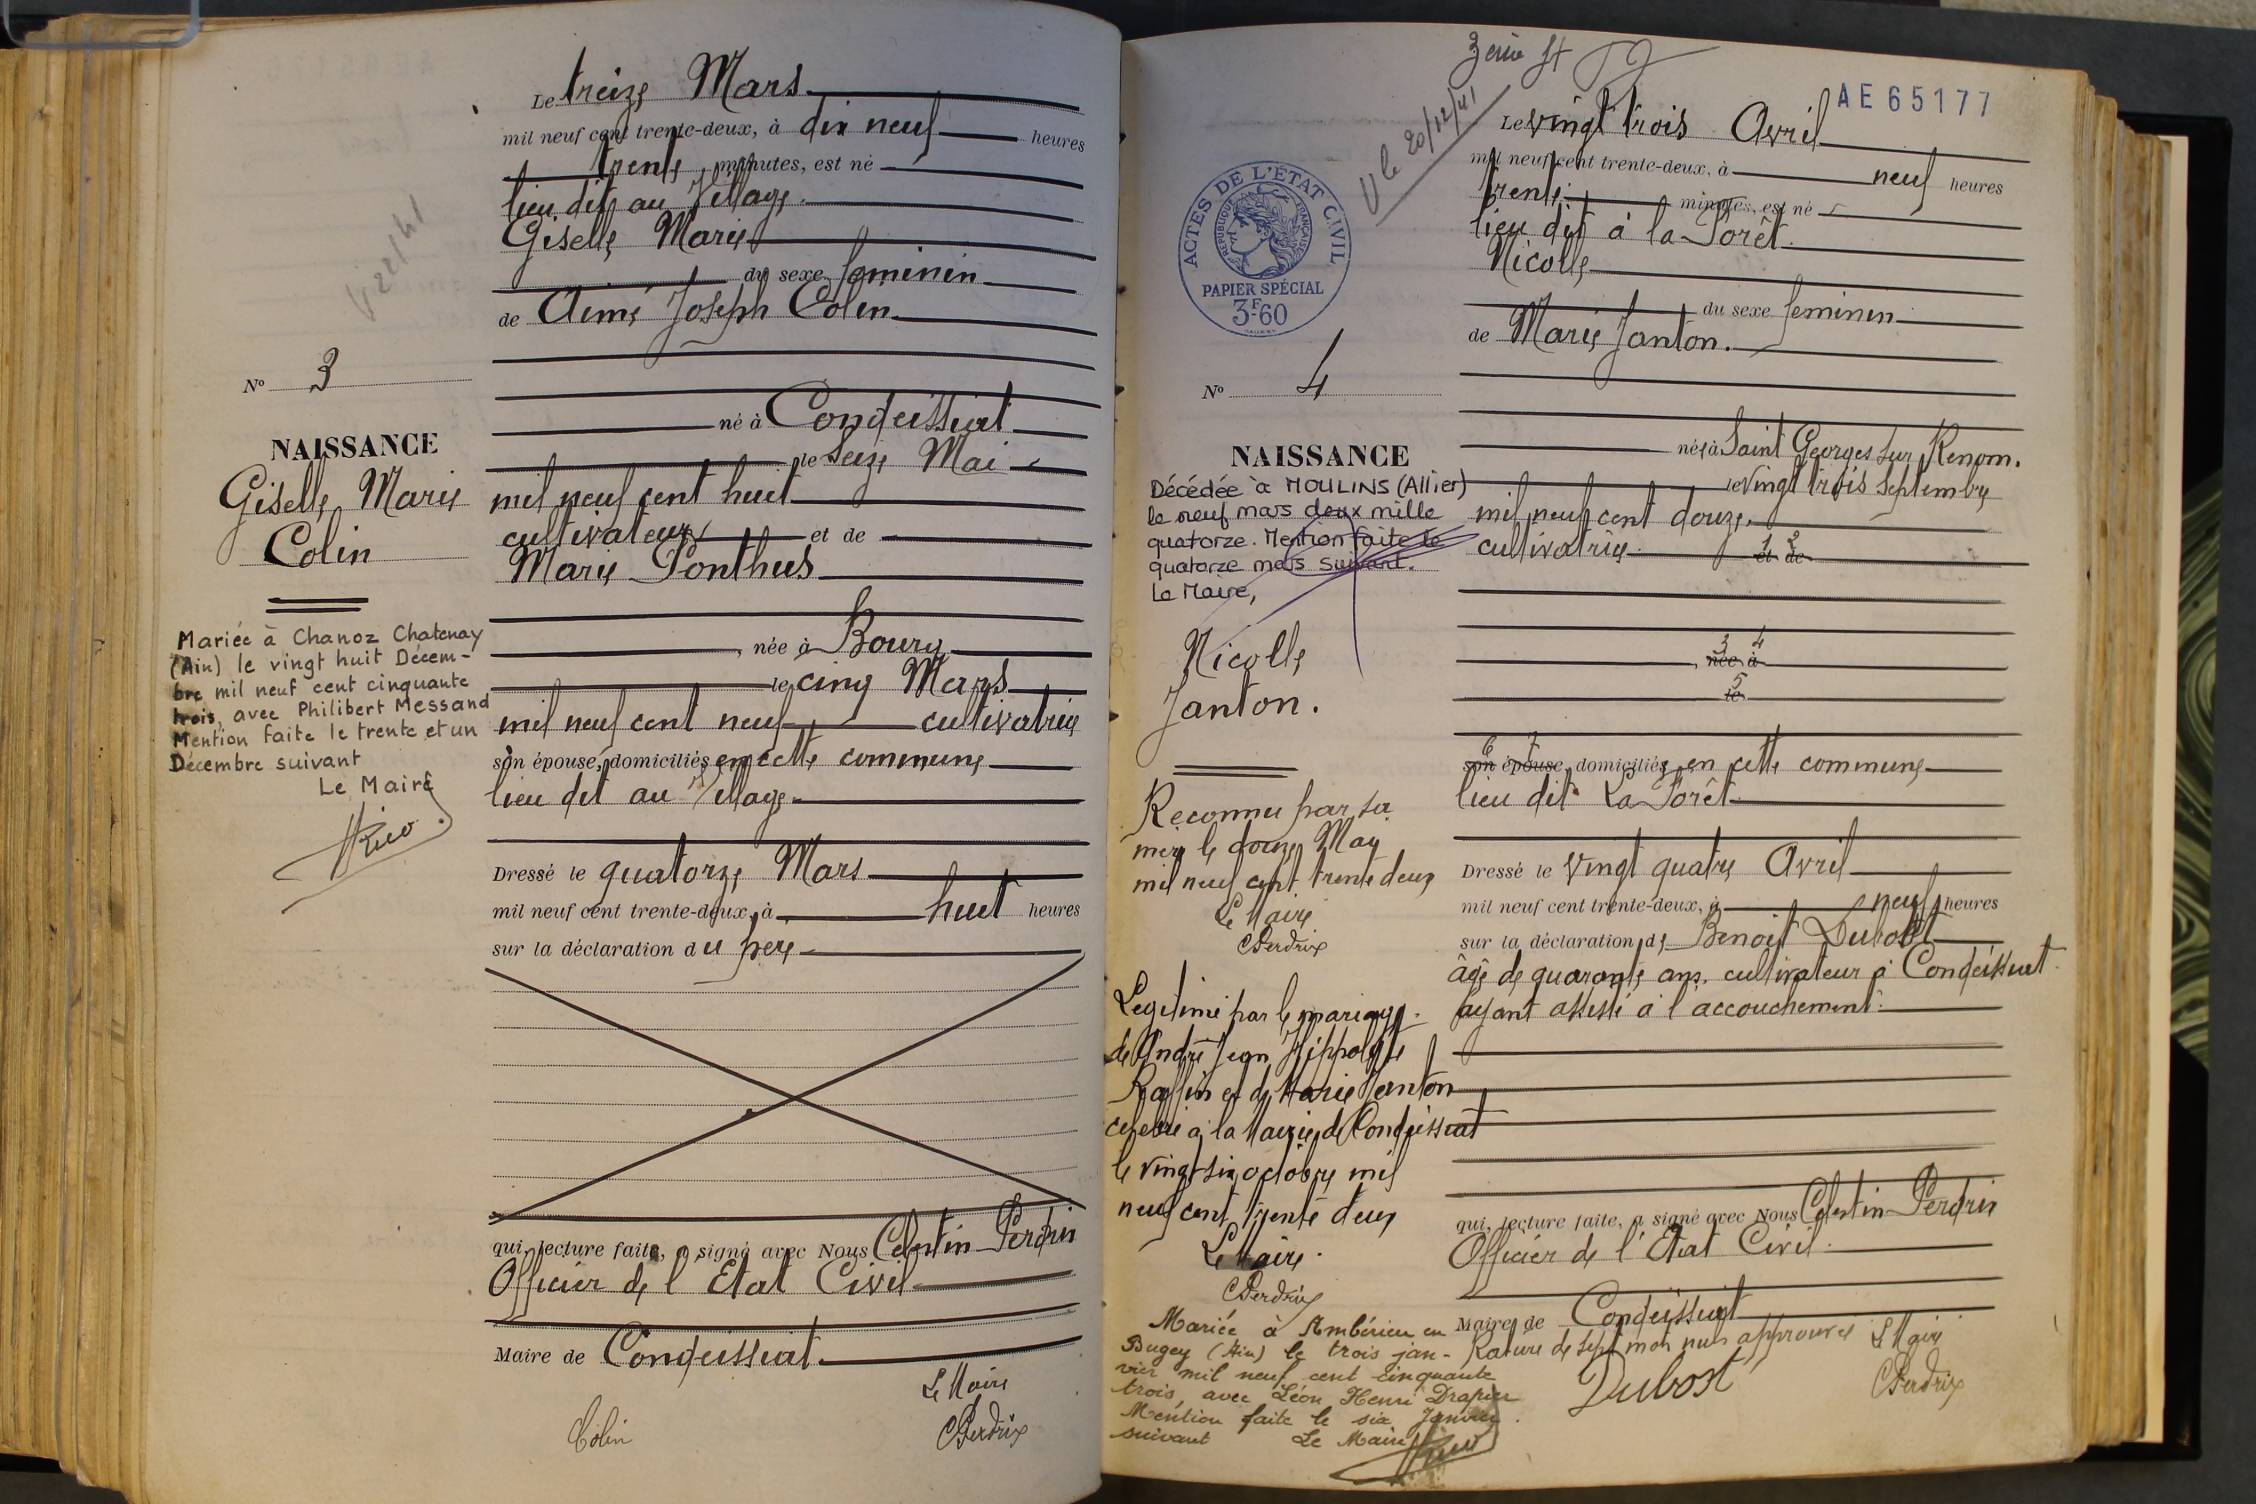 Le treize Mars
mil neuf cent trente-deux, à dix neuf heures
trente minutes, est né
lieu dit au Village
Giselle Marie
du sexe feminin
de Aimé Joseph Colin
né à Condeissiat
le seize Mai
mil neuf cent huit
cultivateur et de
Marie Ponthus
, née à Bourg
le cinq Mars
mil neuf cent neuf cultivatrice
son épouse, domiciliés en cette commune
lieu dit au Village
Dressé le quatorze Mars
mil neuf cent trente-deux, à huit heures
sur la déclaration du père
qui, lecture faite, a signé avec Nous Celestin Perdrix
Officier de l'Etat Civil
Maire de Condeissiat
Le Maire
Colin
CPerdrix
N° 3
NAISSANCE
Giselle Marie
Colin
Mariée à Chanoz Chatenay
(Ain) le vingt huit Décem-
bre mil neuf cent cinquante
trois, avec Philibert Messand
Mention faite le trente et un
Décembre suivant
Le Maire
AE65177
V le 20/12/41
Le vingt trois Avril
mil neuf cent trente-deux, à neuf heures
trente minutes, est né
lieu dit à la Forêt
Nicolle
du sexe feminin
de Marie Janton.
née à Saint Georges sur Renom.
le vingt trois Septembre
mil neuf cent douze.
cultivatrice 1 2 et de
3 4 , née à
5 le
6 7 son épouse, domiciliée en cette commune
lieu dit La Forêt
Dressé le vingt quatre Avril
mil neuf cent trente-deux, à neuf heures
sur la déclaration de Benoit Dubost
âgé de quarante ans. cultivateur à Condeissiat
ayant assisté à l'accouchement.
qui, lecture faite, a signé avec Nous Celestin Perdrix
Officier de l'Etat Civil
Maire de Condeissiat
Rature de sept mots nuls approuvée Le Maire
Dubost
CPerdrix
ACTES DE L'ÉTAT CIVIL
RÉPUBLIQUE FRANÇAISE
PAPIER SPÉCIAL
3F60
N° 4
NAISSANCE
Décédée à MOULINS (Allier)
le neuf mars deux mille
quatorze. Mention faite le
quatorze mars suivant.
Le Maire,
Nicolle
Janton.
Reconnu par sa
mère le douze Mai
mil neuf cent trente deux
Le Maire
CPerdrix
Legitimé par le mariage
de André Jean Hippolyte
Raffin et de Marie Janton
celebré à la Mairie de Condeissiat
le vingt six octobre mil
neuf cent trente deux
Le Maire
CPerdrix
Mariée à Ambérieu en
Bugey (Ain) le trois jan-
vier mil neuf cent cinquante
trois, avec Léon Henri Drapier
Mention faite le six Janvier
suivant Le Maire